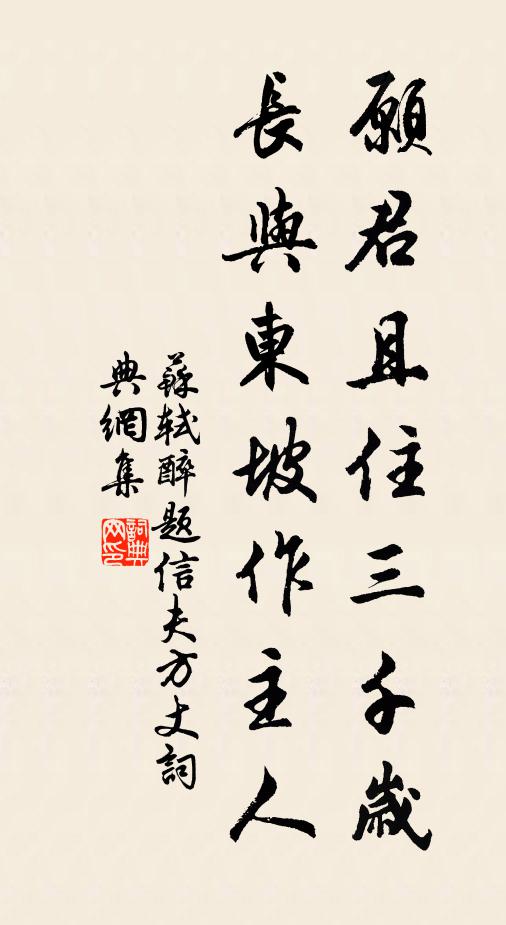 願君且住三千歲
長與東坡作主人
蘇軾醉題信夫方丈詞
典網集
詞典網印